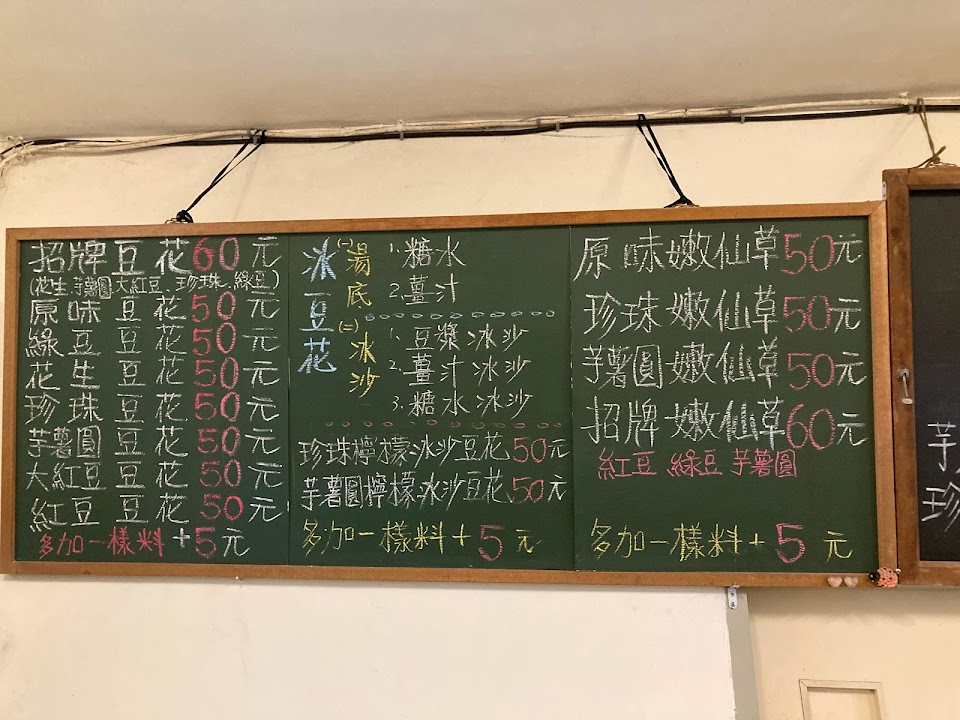 招牌豆花60元
(花生.芋薯圓.大紅豆.珍珠.綠豆)
原味豆花50元
綠豆豆花50元
花生豆花50元
珍珠豆花50元
芋薯圓豆花50元
大紅豆豆花50元
紅豆豆花50元
多加一樣料+5元
冰豆花
(一)湯底
1.糖水
2.薑汁
(二)冰沙
1.豆漿冰沙
2.薑汁冰沙
3.糖水冰沙
珍珠檸檬冰沙豆花50元
芋薯圓檸檬冰沙豆花50元
多加一樣料+5元
原味嫩仙草50元
珍珠嫩仙草50元
芋薯圓嫩仙草50元
招牌嫩仙草60元
紅豆 綠豆 芋薯圓
多加一樣料+5元
芋
珍